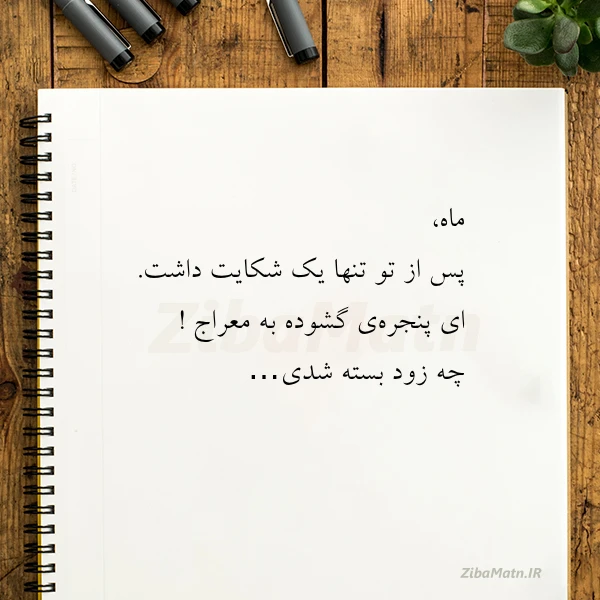 ماه،
پس از تو تنها یک شکایت داشت.
ای پنجره‌ی گشوده به معراج !
چه زود بسته شدی...
ZibaMatn
ZibaMatn.IR